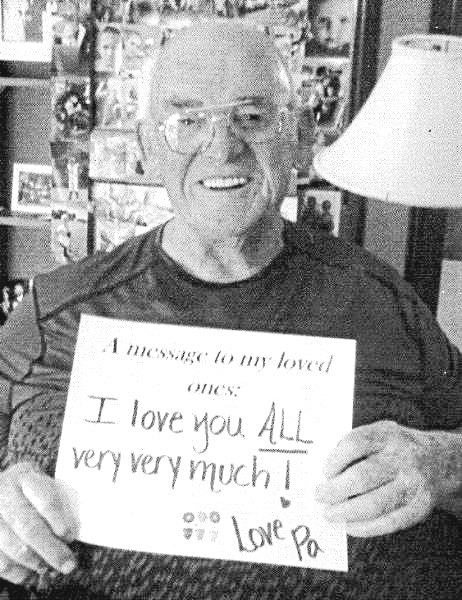 A message to my loved
ones:
I love you ALL
very very much!
Love Pa